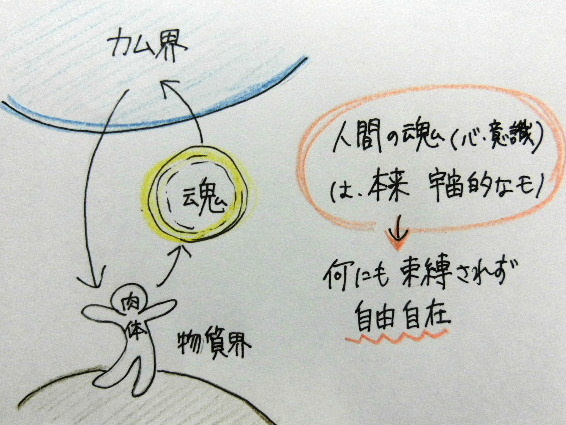 カム界
魂
肉
体
物質界
人間の魂(心・意識)
は、本来 宇宙的なモノ
何にも束縛されず
自由自在